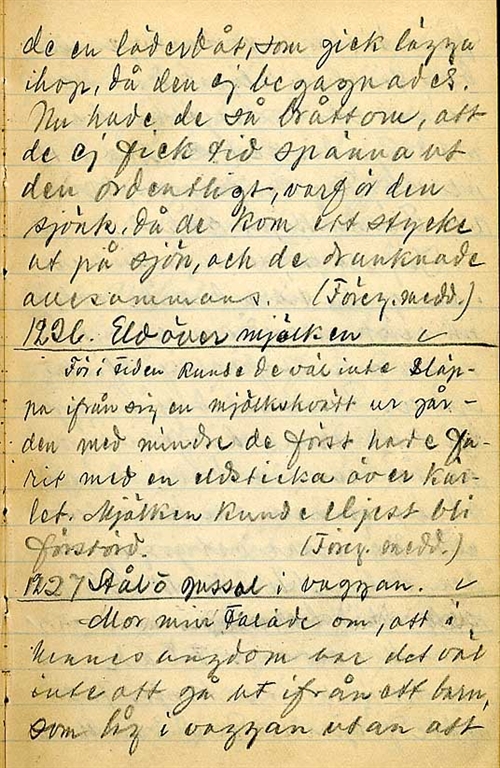 de en läderbåt, som gick lägga
ihop, då den ej begagnades.
Nu hade de så bråttom, att
de ej fick tid spänna ut
den ordentligt, varför den
sjönk, då de kom ett stycke
ut på sjön, och de drunknade
allesammans. (Föreg. medd.)
1226. Eld över mjölken
För i tiden kunde de väl inte släp-
pa ifrån sig en mjölkskvätt ur går-
den med mindre de först hade fa-
rit med en eldsticka över kär-
let. Mjölken kunde eljest bli
förstörd. (Föreg. medd.)
1227 Stål o psssal i vaggan.
Mor min talade om, att i
hennes ungdom var det väl
inte att gå ut ifrån ett barn,
som låg i vaggan utan att